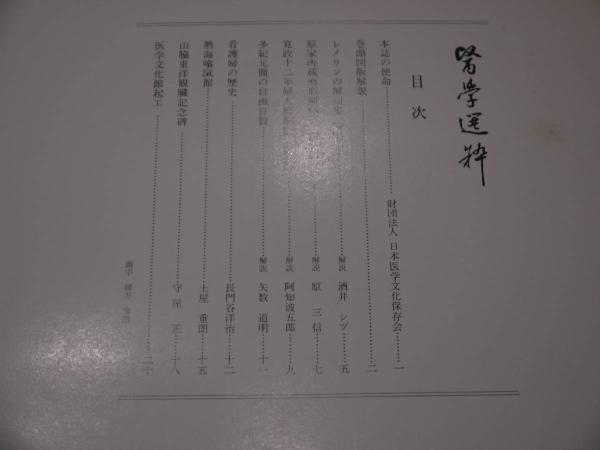 醫学選粋
目次
本誌の使命 財団法人 日本医学文化保存会 一
巻頭図版解説 二
レメリンの解剖 解説 酒井 シヅ 五
原家所蔵 解説 原 三信 七
寛政十二年婦人 解説 阿知波五郎 九
多紀元簡の自画自賛 解説 矢数 道明 十一
看護婦の歴史 長門谷洋治 十二
熱海噏気館 土屋 重朗 十五
山脇東洋観臓記念碑 守屋 正 十八
医学文化館起工 二十
題字 緒方